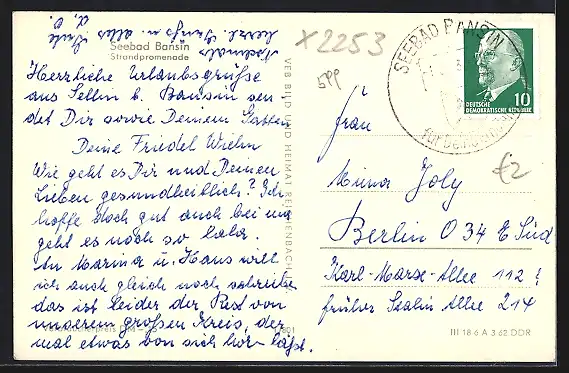 Nochmals
herzl. Grüße u. alles Gute
Seebad Bansin
Strandpromenade
Herrliche Urlaubsgrüße
aus Sellin b. Bansin sen-
det Dir sowie Deinem Gatten
Deine Friedel Wiehn
Wie geht es Dir und Deinen
Lieben gesundheitlich? Ich
hoffe doch gut auch bei uns
geht es noch so lala.
An Marina u. Hans will
ich auch gleich noch schreiben
das ist leider der Rest von
unserem großen Kreis, der
mal etwas von sich hören läßt.
VEB BILD UND HEIMAT REICHENBACH
X2253
599
SEEBAD BANSIN
DEUTSCHE
DEMOKRATISCHE REPUBLIK
10
€2
Frau
Minna Joly
Berlin O 34 E Süd
Karl-Marx-Allee 112 !
früher Stalin Allee 214
III 18 6 A 3 62 DDR